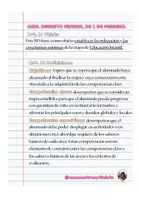 REAL DECRETO 95/2022, DE 1 DE FEBRERO.
Art. 1: Objeto
Este RD tiene como objeto establecer la ordenación y las
enseñanzas mínimas de la etapa de Educación Infantil.
Art. 2: Definiciones
Objetivos: logros que se espera que el alumnado haya
alcanzado al finalizar la etapa y cuya consecución está
vinculada a la adquisición de las competencias clave.
Competencias clave: desempeños que se consideran
imprescindibles para que el alumnado pueda progresar
con garantías de éxito en su itinerario formativo, y
afrontar los principales retos y desafíos globales y locales.
Competencias específicas: desempeños que el
alumnado debe poder desplegar en actividades o en
situaciones cuyo abordaje requiere de los saberes
básicos de cada área. Estas constituyen un
elemento de conexión entre las competencias clave y
los saberes básicos de las áreas y los criterios de
evaluación.